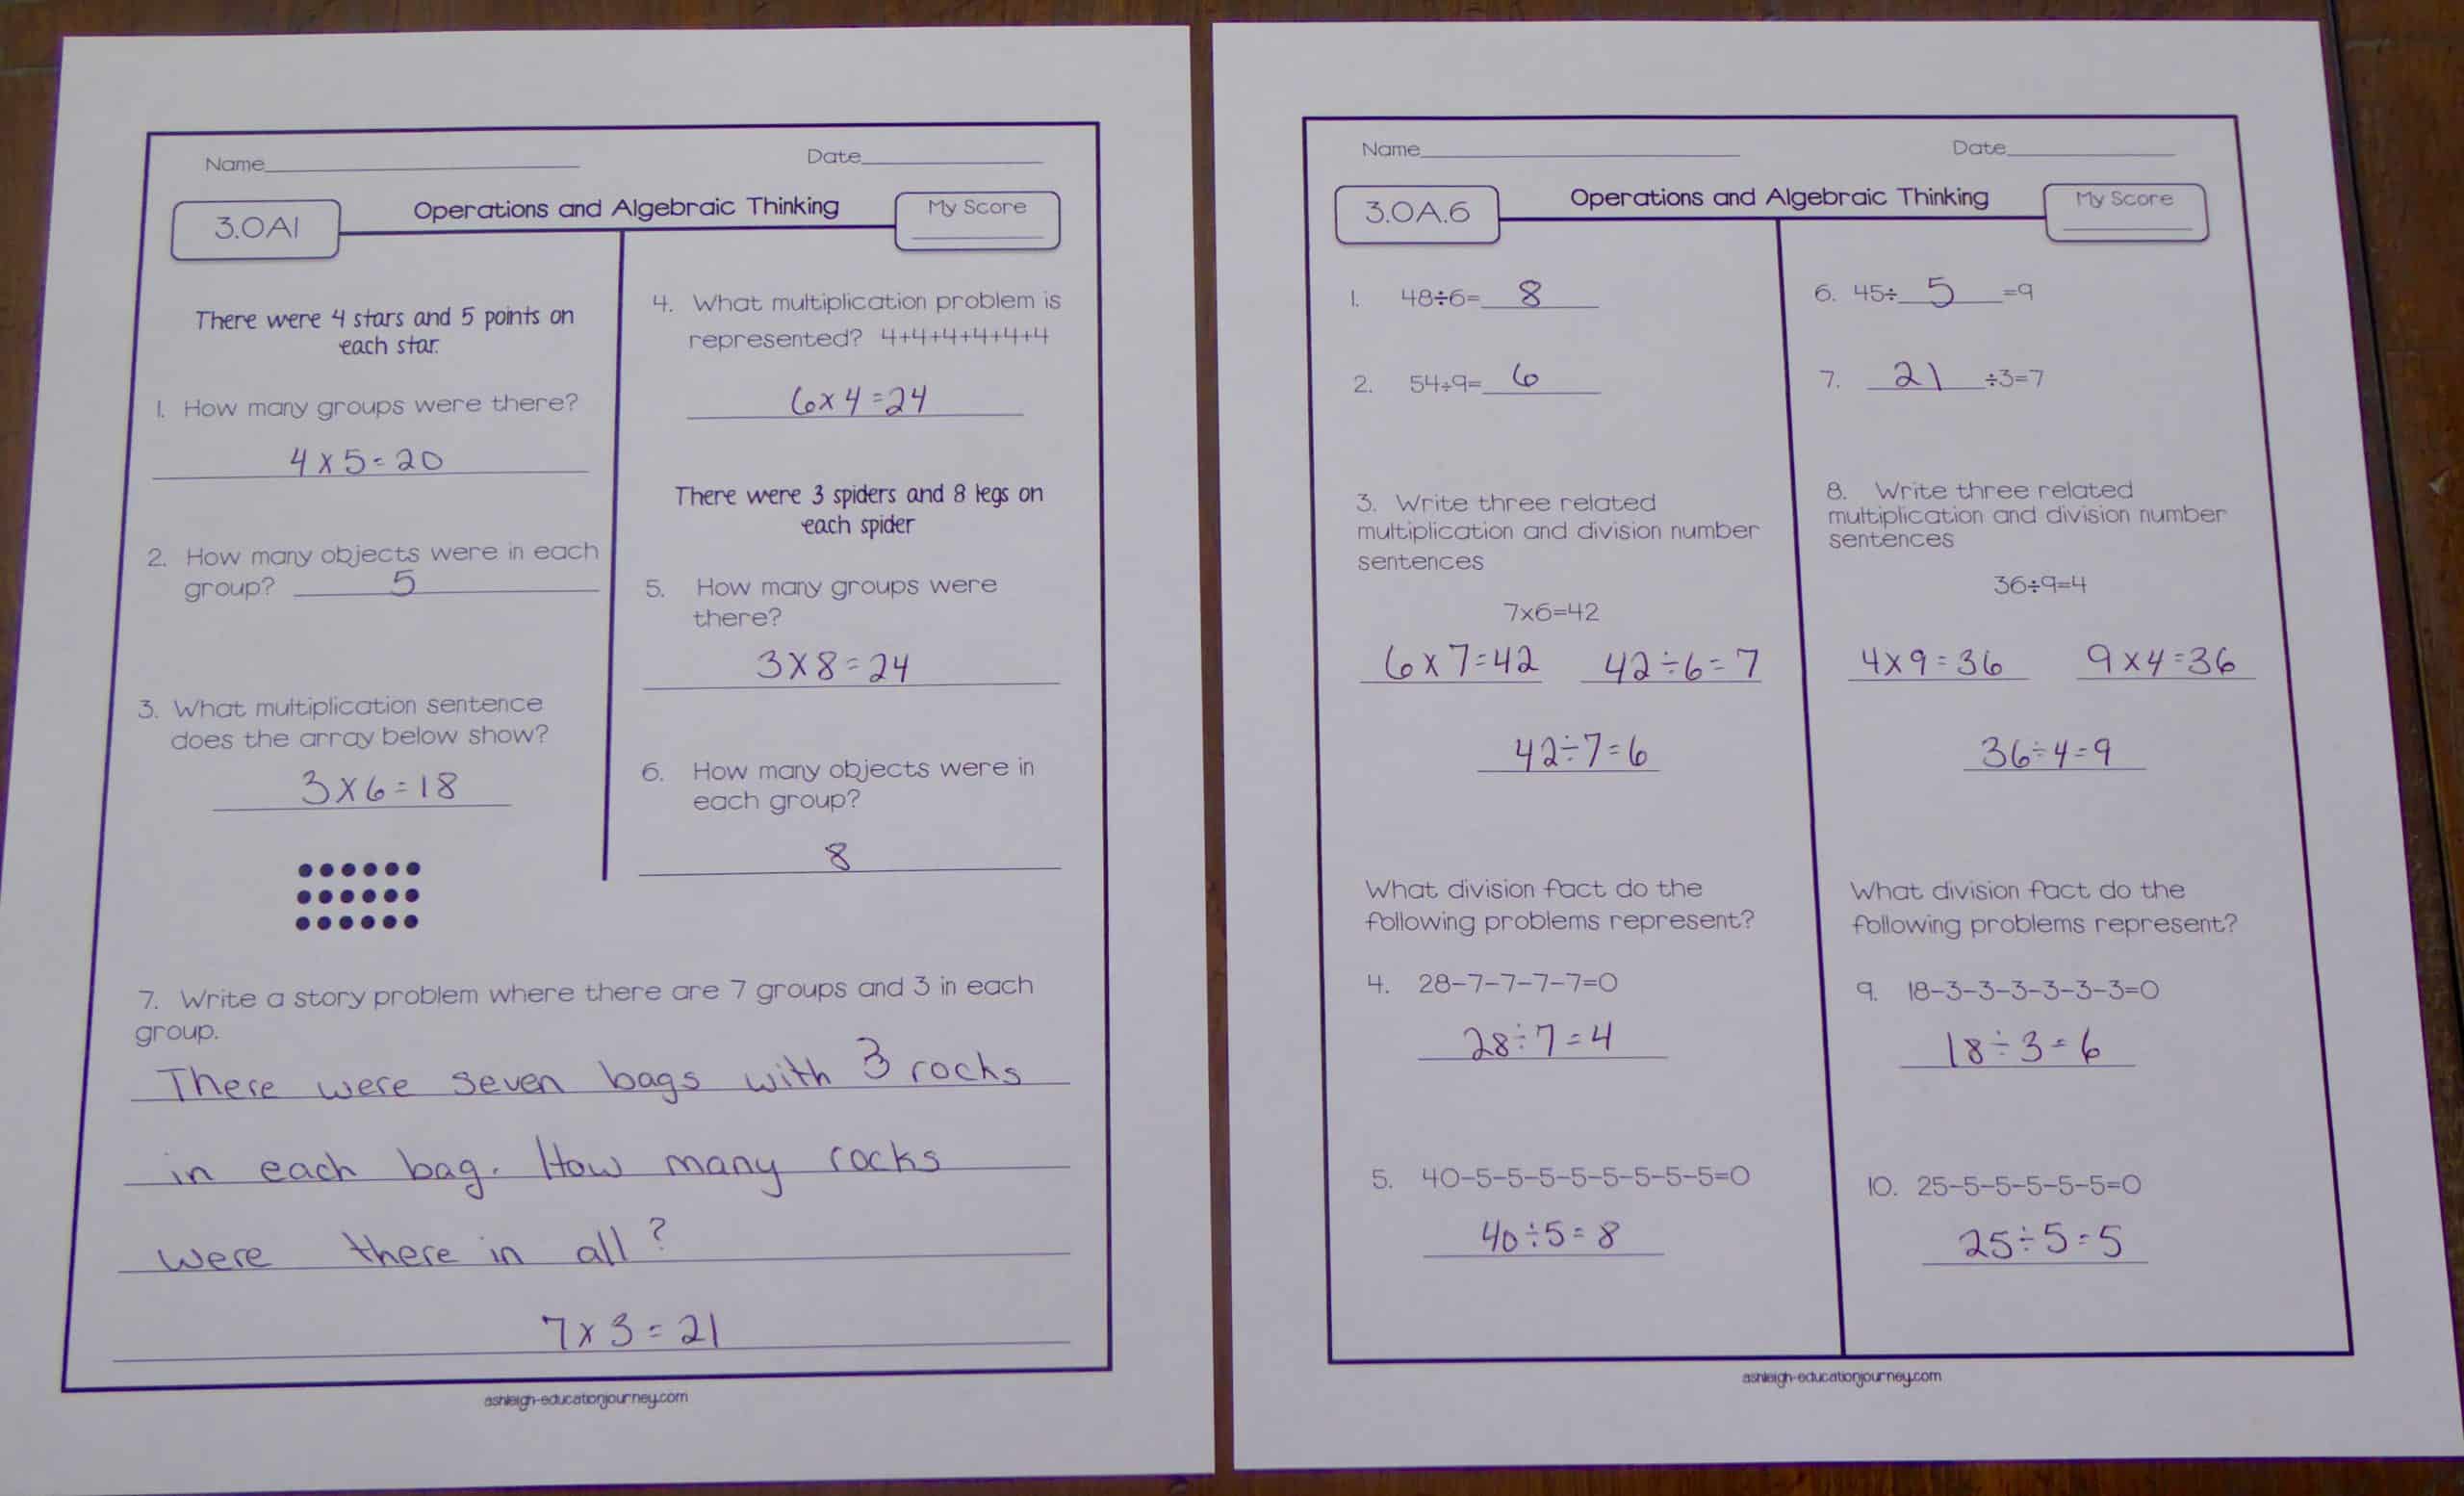 Name
Date
3.OA1
Operations and Algebraic Thinking
My Score
There were 4 stars and 5 points on
each star.
1. How many groups were there?
4 x 5 = 20
2. How many objects were in each
group? 5
3. What multiplication sentence
does the array below show?
3 x 6 = 18
4. What multiplication problem is
represented? 4+4+4+4+4+4
6 x 4 = 24
There were 3 spiders and 8 legs on
each spider
5. How many groups were
there?
3 x 8 = 24
6. How many objects were in
each group?
8
7. Write a story problem where there are 7 groups and 3 in each
group.
There were seven bags with 3 rocks
in each bag. How many rocks
were there in all?
7 x 3 = 21
ashleigh-educationjourney.com
Name
Date
3.OA.6
Operations and Algebraic Thinking
My Score
1. 48÷6= 8
2. 54÷9= 6
3. Write three related
multiplication and division number
sentences
7x6=42
6 x 7 = 42 42 ÷ 6 = 7
42 ÷ 7 = 6
What division fact do the
following problems represent?
4. 28-7-7-7-7=0
28 ÷ 7 = 4
5. 40-5-5-5-5-5-5-5-5=0
40 ÷ 5 = 8
6. 45÷ 5 =9
7. 21 ÷3=7
8. Write three related
multiplication and division number
sentences
36÷9=4
4 x 9 = 36 9 x 4 = 36
36 ÷ 4 = 9
What division fact do the
following problems represent?
9. 18-3-3-3-3-3-3=0
18 ÷ 3 = 6
10. 25-5-5-5-5-5=0
25 ÷ 5 = 5
ashleigh-educationjourney.com